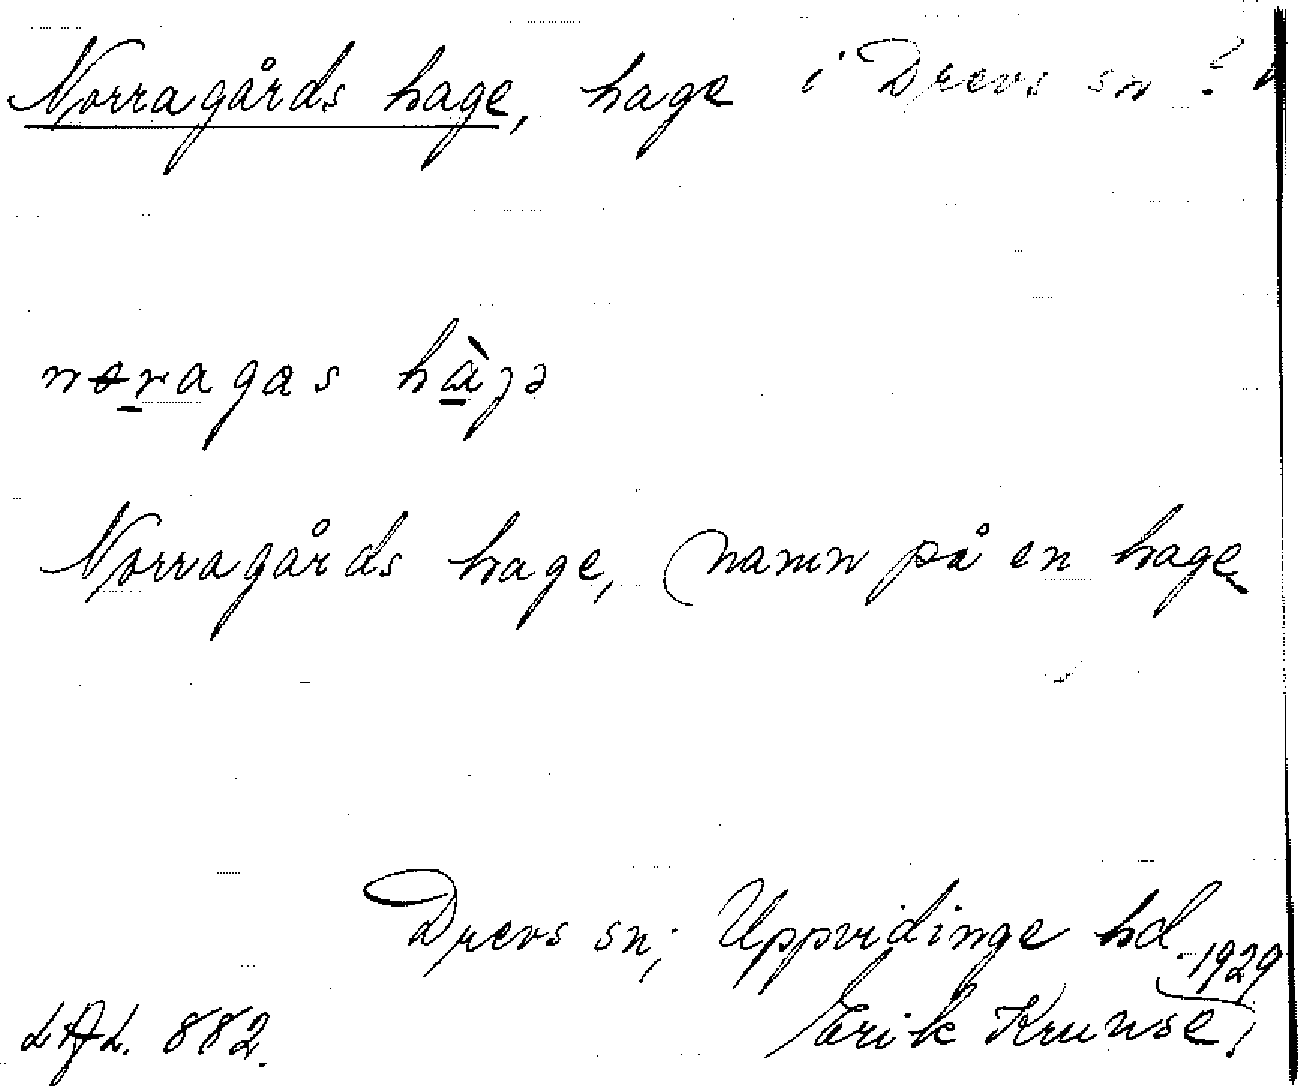 Norragårds hage, hage i Drevs sn
noragas hàgə
Norragårds hage, (namn på en hage
Drevs sn; Uppvidinge hd
1929
LAL. 882. Erik Krunse.